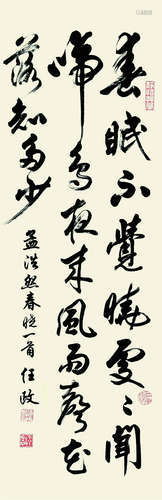 春眠不覺曉處〻聞
啼鳥夜来風雨聲花
落知多少
孟浩然春晓一首 任政